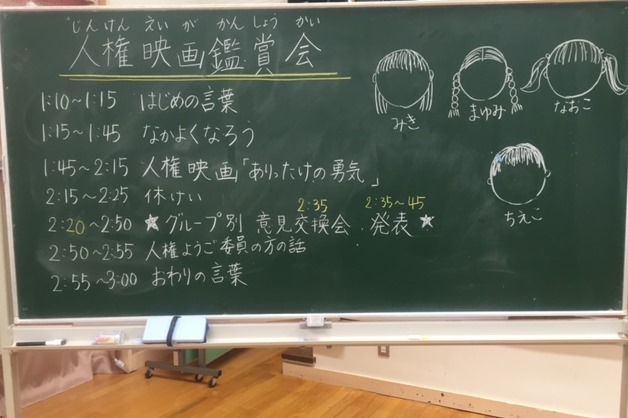 じんけん えいが かんしょう かい
人権映画鑑賞会
1:10〜1:15 はじめの言葉
1:15〜1:45 なかよくなろう
1:45〜2:15 人権映画「ありったけの勇気」
2:15〜2:25 休けい
2:35 2:35〜45
2:20〜2:50 ★グループ別 意見交換会、発表★
2:50〜2:55 人権ようご委員の方の話
2:55〜3:00 おわりの言葉
みき
まゆみ
なおこ
ちえこ